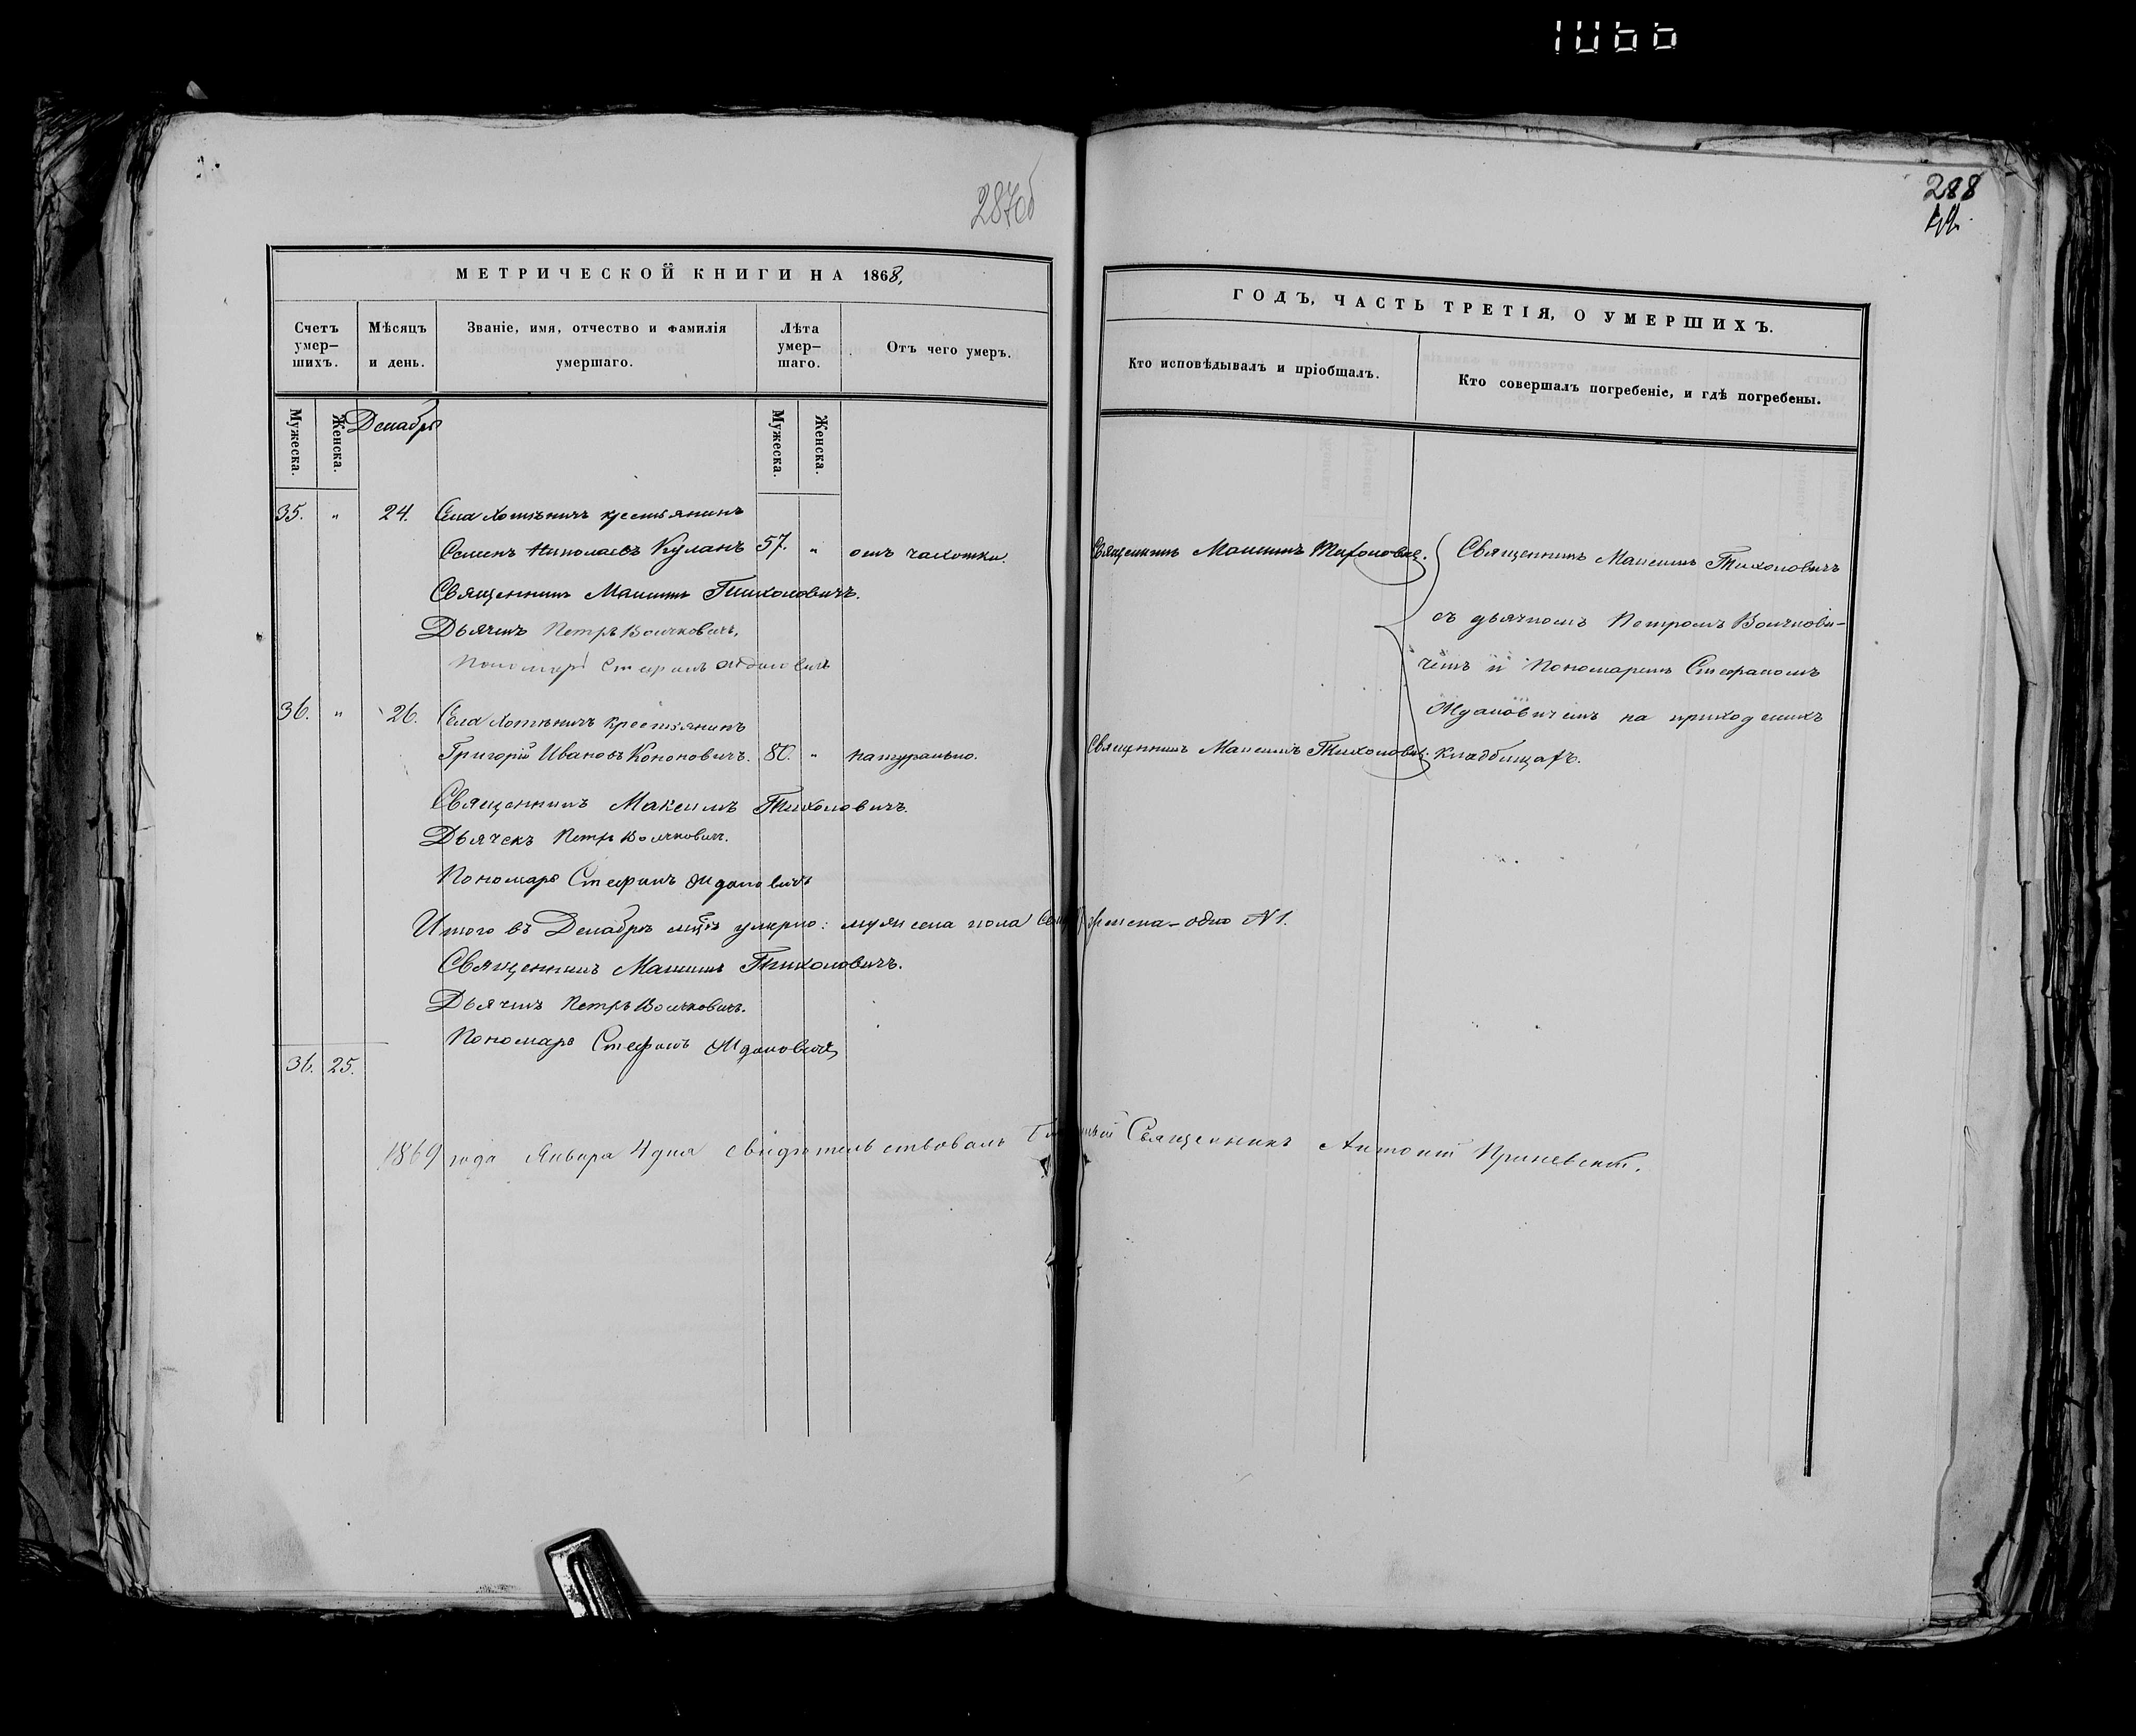 1066
287об
288
МЕТРИЧЕСКОЙ КНИГИ НА 1868,
Счетъ умер-
шихъ.
Мѣсяцъ
и день.
Званіе, имя, отчество и фамилія
умершаго.
Лѣта
умер-
шаго.
Отъ чего умеръ.
Мужеска.
Женска.
Декабрь
Мужеска.
Женска.
35. " 24. Села Хотыничъ крестьянинъ
Семенъ Николаевъ Куланъ 57. " отъ чахотки.
Священникъ Максимъ Тихоновичъ.
Дьячекъ Петръ Волчковичъ.
Пономарь Стефанъ Ждановичъ
36. " 26. Села Хотыничъ крестьянинъ
Григорій Ивановъ Кононовичъ. 80. " натурально.
Священникъ Максимъ Тихоновичъ.
Дьячекъ Петръ Волчковичъ.
Пономарь Стефанъ Ждановичъ
Итого въ Декабрѣ мцѣ умерло: мужеска пола женска - одно N 1.
Священникъ Максимъ Тихоновичъ.
Дьячекъ Петръ Волчковичъ.
Пономарь Стефанъ Ждановичъ
36. 25.
1869 года Января 4 дня свидѣтельствовалъ Священникъ Антоній
ГОДЪ, ЧАСТЬ ТРЕТІЯ, О УМЕРШИХЪ.
Кто исповѣдывалъ и пріобщалъ.
Кто совершалъ погребеніе, и гдѣ погребены.
Священникъ Максимъ Тихоновичъ.
Священникъ Максимъ Тихоновичъ
съ дьячкомъ Петромъ Волчкови-
чемъ и Пономаремъ Стефаномъ
Ждановичемъ на приходскихъ
Священникъ Максимъ Тихоновичъ
кладбищахъ.